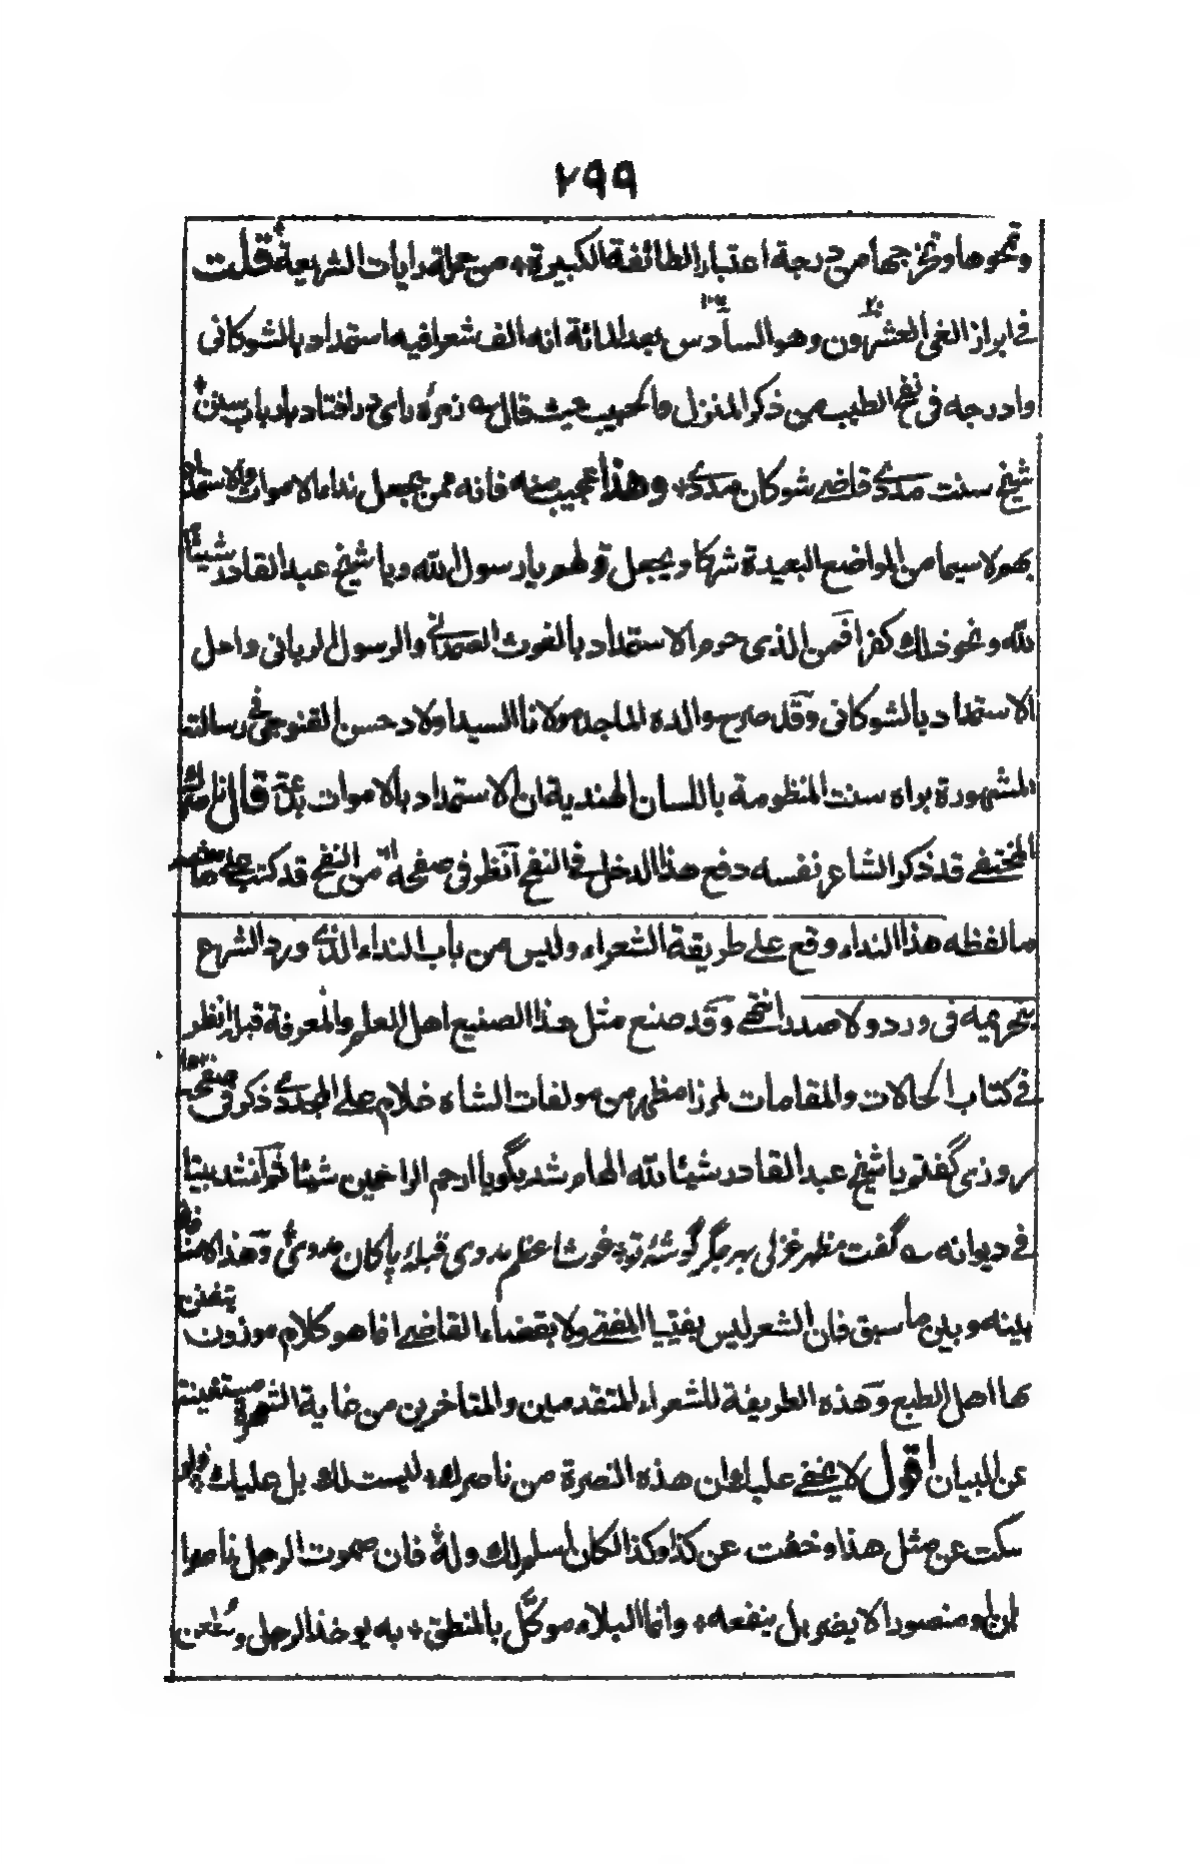 ٢٩٩
ونحوها وتخرجها من درجة اعتبار الطائفة الكبيرة، من حملة رايات الشريعة قلت
في ابراز الغي العشرون وهو السادس بعد المائة انه الف شعرا فيه استمداد بالشوكاني
وادرجه في نفح الطيب من ذكر المنزل والحبيب حيث قال زمره راى در افتاد بارباب سنن
شيخ سنت مددے قاضے شوكان مددے، وهذا عجيب منه فانه ممن يجعل نداء الاموات والاستمداد
بهم لا سيما من المواضع البعيدة شركا ويجعل قولهم يا رسول الله ويا شيخ عبد القادر شيئا
لله ونحو ذلك كفرا فمن الذي حرم الاستمداد بالغوث الصمداني والرسول الرباني واحل
الاستمداد بالشوكاني وقد صرح والده الماجد مولانا السيد اولاد حسن القنوجي في رسالته
المشهورة براه سنت المنظومة باللسان الهندية ان الاستمداد بالاموات بدعة قال ناصرك
المختفے قد ذكر الشاعر نفسه دفع هذا الدخل في النفح انظر في صفحة من النفح قد كتب على
ما لفظه هذا النداء وقع على طريقة الشعراء وليس من باب النداء الذي ورد الشرع
بتحريمه في ورد ولا صدر انتهے وقد صنع مثل هذا الصنيع اهل العلم والمعرفة قبل انظر
في كتاب الحالات والمقامات لمرزا مظهر من مولفات الشاه غلام على المجددے ذكر في صفحة
روزى گفتم يا شيخ عبد القادر شيئا لله الهام شد بگو يا ارحم الراحمين شيئا ثم انشد بيتا
في ديوانه گفت مظهر غزلى بهر جگر گوشۂ تو، غوث اعظم مددى قبلۂ پاكان مددى وهذا
بينه وبين ما سبق فان الشعر ليس بفتيا المفتے ولا بقضاء القاضے انما هو كلام موزون يتفنن
بها اهل الطبع وهذه الطريقة للشعراء المتقدمين والمتاخرين من غاية الشهرة مستغنية
عن البيان اقول لا يخفے عليك ان هذه النصرة من ناصرك ليست لك بل عليك ولو
سكت عن مثل هذا وخفت عن كذا وكذا لكان اسلم لك وله فان صموت الرجل ناصرا
كان او منصورا لا يضر بل ينفعه، وانما البلاء موكل بالمنطق، به يوخذ الرجل